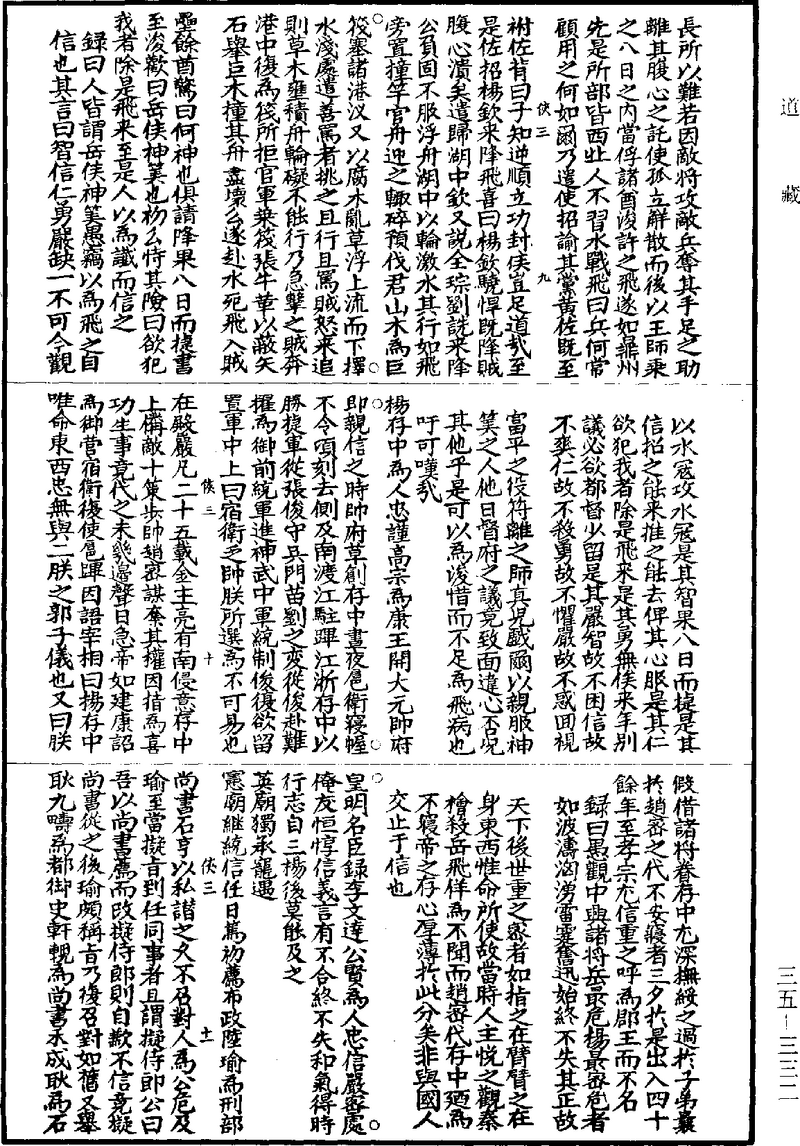 道藏
長所以難若因敵將攻敵兵奪其手足之助
離其腹心之託使孤立觧散而後以王師乘
之八日之内當俘諸酋浚許之飛遂如鼎州
先是所部皆西北人不習水戰飛曰兵何常
顧用之何如爾乃遣使招諭其黨黃佐既至
俠三 九
拊佐背曰子知逆順立功封侯豈足道㦲至
是佐招楊欽來降飛喜曰楊欽驍悍既降賊
腹心潰矣遣歸湖中欽又說全琮劉詵来降
公負固不服浮舟湖中以輪激水其行如飛
旁置撞竿官舟迎之輙碎預伐君山木為巨
筏塞諸港汊又以腐木亂草浮上流而下擇
水淺處遣善罵者挑之且行且罵賊怒来追
則草木壅積舟輪礙不能行乃急擊之賊奔
港中復為筏所拒官軍乘筏張牛革以蔽矢
石舉巨木撞其舟盡壞么遂赴水死飛入賊
壘餘酋驚曰何神也俱請降果八日而捷書
至浚歎曰岳侯神筭也初么恃其險曰欲犯
我者除是飛来至是人以為讖而信之
録曰人皆謂岳侯神筭愚竊以為飛之自
信也其言曰智信仁勇嚴缺一不可今觀
以水寇攻水寇是其智果八日而捷是其
信招之能来推之能去俾其心服是其仁
欲犯我者除是飛来是其勇無俟来年別
議必欲都督少留是其嚴智故不困信故
不爽仁故不殺勇故不懼嚴故不惑囬視
富平之役符離之師真兒戲爾以親服神
筭之人他日督府之議竟致面違心否况
其他乎是可以為浚惜而不足為飛病也
吁可嘆㦲
楊存中為人忠謹高宗為康王開大元帥府
即親信之時帥府草創存中晝夜扈衛寢幄
不令頃刻去側及南渡江駐蹕江浙存中以
勝捷軍從張俊守吳門苗劉之变從俊赴難
擢為御前統軍進神武中軍統制俊復欲留
置軍中上曰宿衛乏帥朕所選為不可易也
俠三 十
在殿嚴凡二十五載金主亮有南侵意存中
上備敵十策步帥趙密謀奪其權因指為喜
功生事竟代之未幾邊聲日急帝如建康詔
為御營宿衛復使扈蹕因語宰相曰楊存中
唯命東西忠無與二朕之郭子儀也又曰朕
假借諸將眷存中尤深撫綏之過於子弟曩
於趙密之代不安寢者三夕於是出入四十
餘年至孝宗尤信重之呼為郡王而不名
録曰愚觀中興諸將岳最危楊最密危者
如波濤洶湧雷霆奮迅始終不失其正故
天下後世重之密者如指之在臂臂之在
身東西惟命所使故當時人主悅之觀秦
檜殺岳飛佯為不聞而趙密代存中廼為
不寢帝之存心厚薄於此分矣非與國人
交止于信也
皇明名臣録李文達公賢為人忠信嚴密處
僚友恒惇信義言有不合終不失和氣得時
行志自三楊後莫能及之
英廟獨承寵遇
憲廟継統信任日篤初薦布政陸瑜為刑部
俠三 十一
尚書石亨以私譖之久不召對人為公危及
瑜至當擬旨到任同事者且謂擬侍郎公曰
吾以尚書薦而改擬侍郎則自欺不信竟擬
尚書從之後瑜頗稱旨乃復召對如舊又舉
耿九疇為都御史軒輗為尚書未成耿為石
三五—三三二